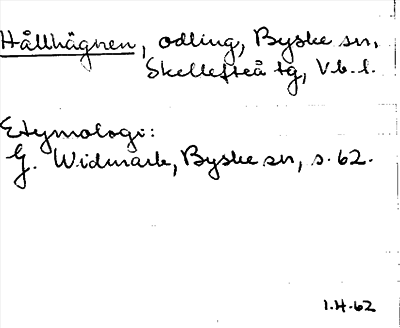 Hållhägnen, odling, Byske sn,
Skellefteå tg, V.b.l.
Etymologi:
G. Widmark, Byske sn, s. 62.
I.H.62